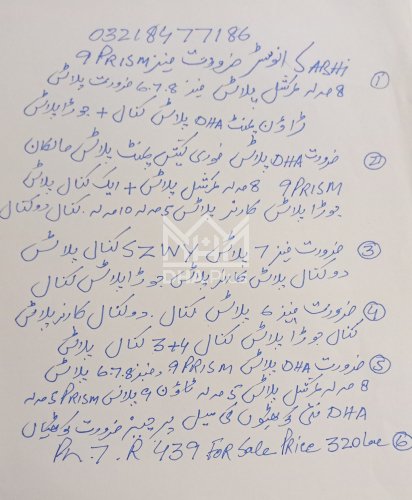 03218477186
SARHi انوسٹر ضرورت فیز 9 PRISM
① 8 مرلہ کمرشل پلاٹس فیز 6.7.8 ضرورت پلاٹس
ڈاؤن پیمنٹ DHA پلاٹس کنال + جوڑا پلاٹس
② ضرورت DHA پلاٹس فوری کیش پیمنٹ پلاٹس مالکان
9 PRISM 8 مرلہ کمرشل پلاٹس + ایک کنال پلاٹس
جوڑا پلاٹس کارنر پلاٹس 5 مرلہ 10 مرلہ کنال دو کنال
③ ضرورت فیز 7 پلاٹس SZWY کنال پلاٹس
دو کنال پلاٹس کارنر پلاٹس جوڑا پلاٹس کنال
④ ضرورت فیز 6 پلاٹس کنال . دو کنال کارنر پلاٹس
کنال جوڑا پلاٹس کنال 3+4 کنال پلاٹس
⑤ ضرورت DHA پلاٹس 9 PRISM . فیز 6.7.8 پلاٹس
8 مرلہ کمرشل پلاٹس 5 مرلہ ٹاؤن 9 پلاٹس PRISM 5 مرلہ
DHA کوٹھیوں سیل پرچیز ضرورت کوٹھیاں
⑥ Ph. 7. R 439 FOR Sale Price 320 Lac